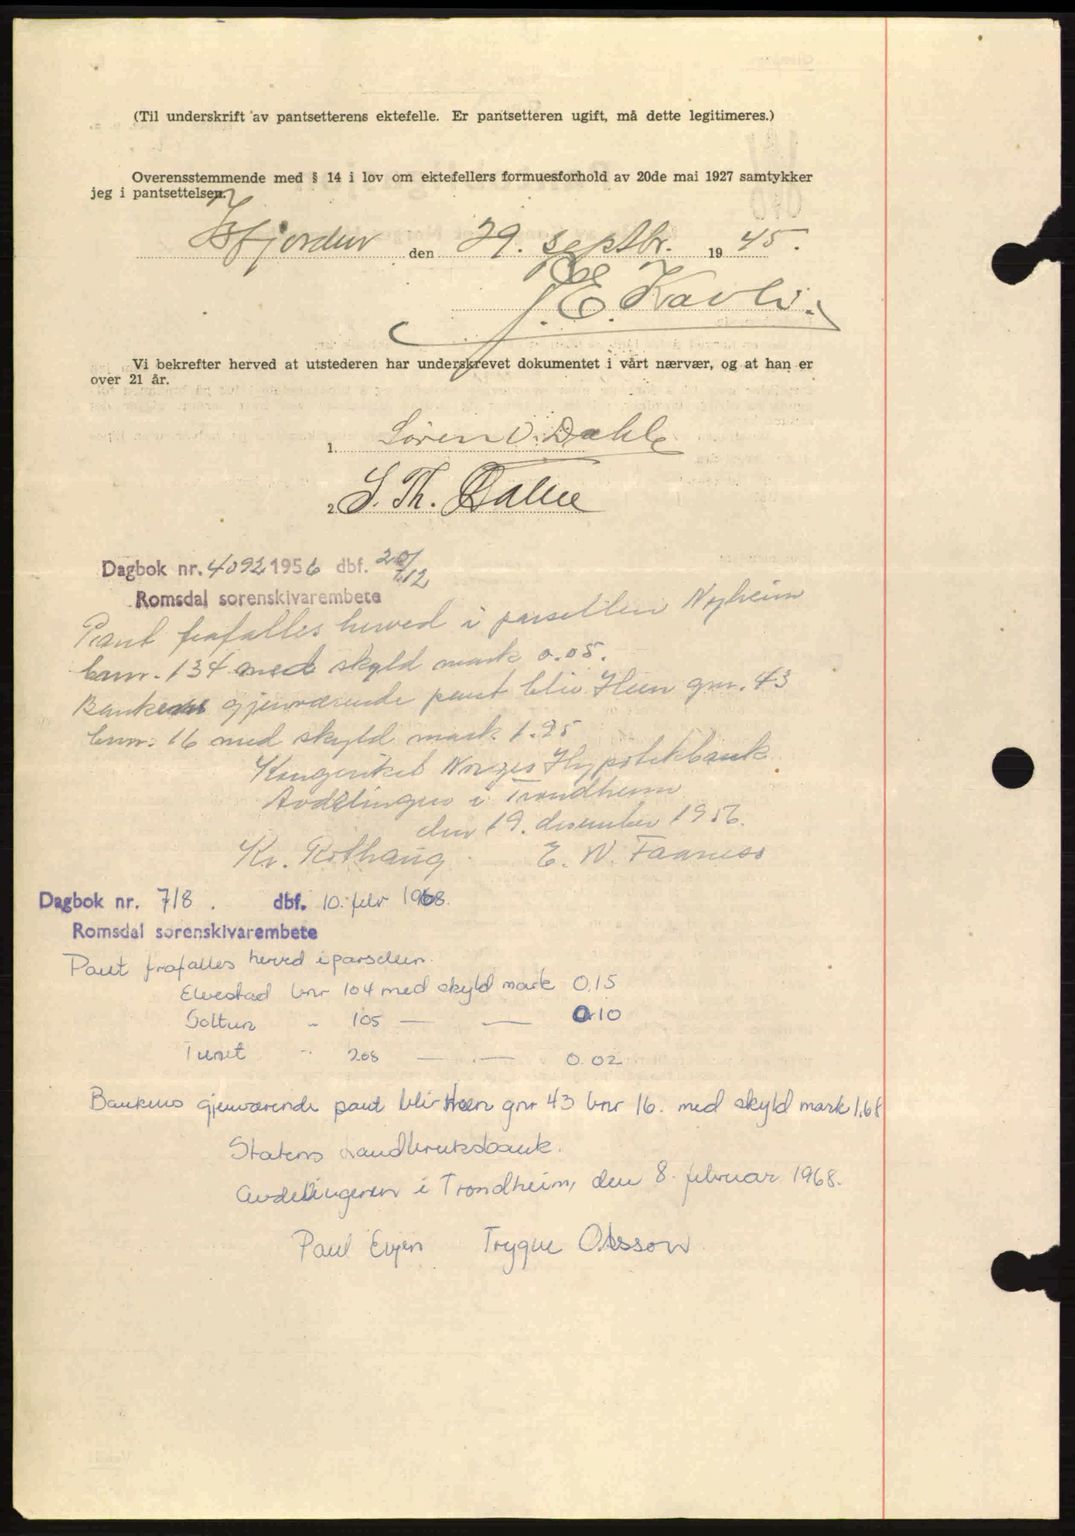 (Til underskrift av pantsetterens ektefelle. Er pantsetteren ugift, må dette legitimeres.)
Overensstemmende med § 14 i lov om ektefellers formuesforhold av 20de mai 1927 samtykker
jeg i pantsettelsen.
den 29. septbr. 19 45.
J. E. Kavli.
Vi bekrefter herved at utstederen har underskrevet dokumentet i vårt nærvær, og at han er
over 21 år.
1. Søren V. Dahle
2. S. Th. Dahle
Dagbok nr. 4092 1956 dbf. 20/12
Romsdal sorenskrivarembete
Pant frafalles herved i parsellen Nyheim
bnr. 134 med skyld mark 0.05.
Bankens gjenværende pant blir Hen gnr. 43
bnr. 16 med skyld mark 1.95
Kongeriket Norges Hypotekbank
Avdelingen i Trondheim
den 19. desember 1956.
Kr. Rothaug E. W. Faaness
Dagbok nr. 718. dbf. 10. febr 1968.
Romsdal sorenskrivarembete
Pant frafalles herved i parsellen.
Elvestad bnr 104 med skyld mark 0.15
Soltun " 105 — — 0.10
Tunet " 208 — — 0.02
Bankens gjenværende pant blir Hen gnr 43 bnr 16. med skyld mark 1.68
Statens Landbruksbank.
Avdelingen i Trondheim, den 8. februar 1968.
Paul Evjen Trygve Olsson